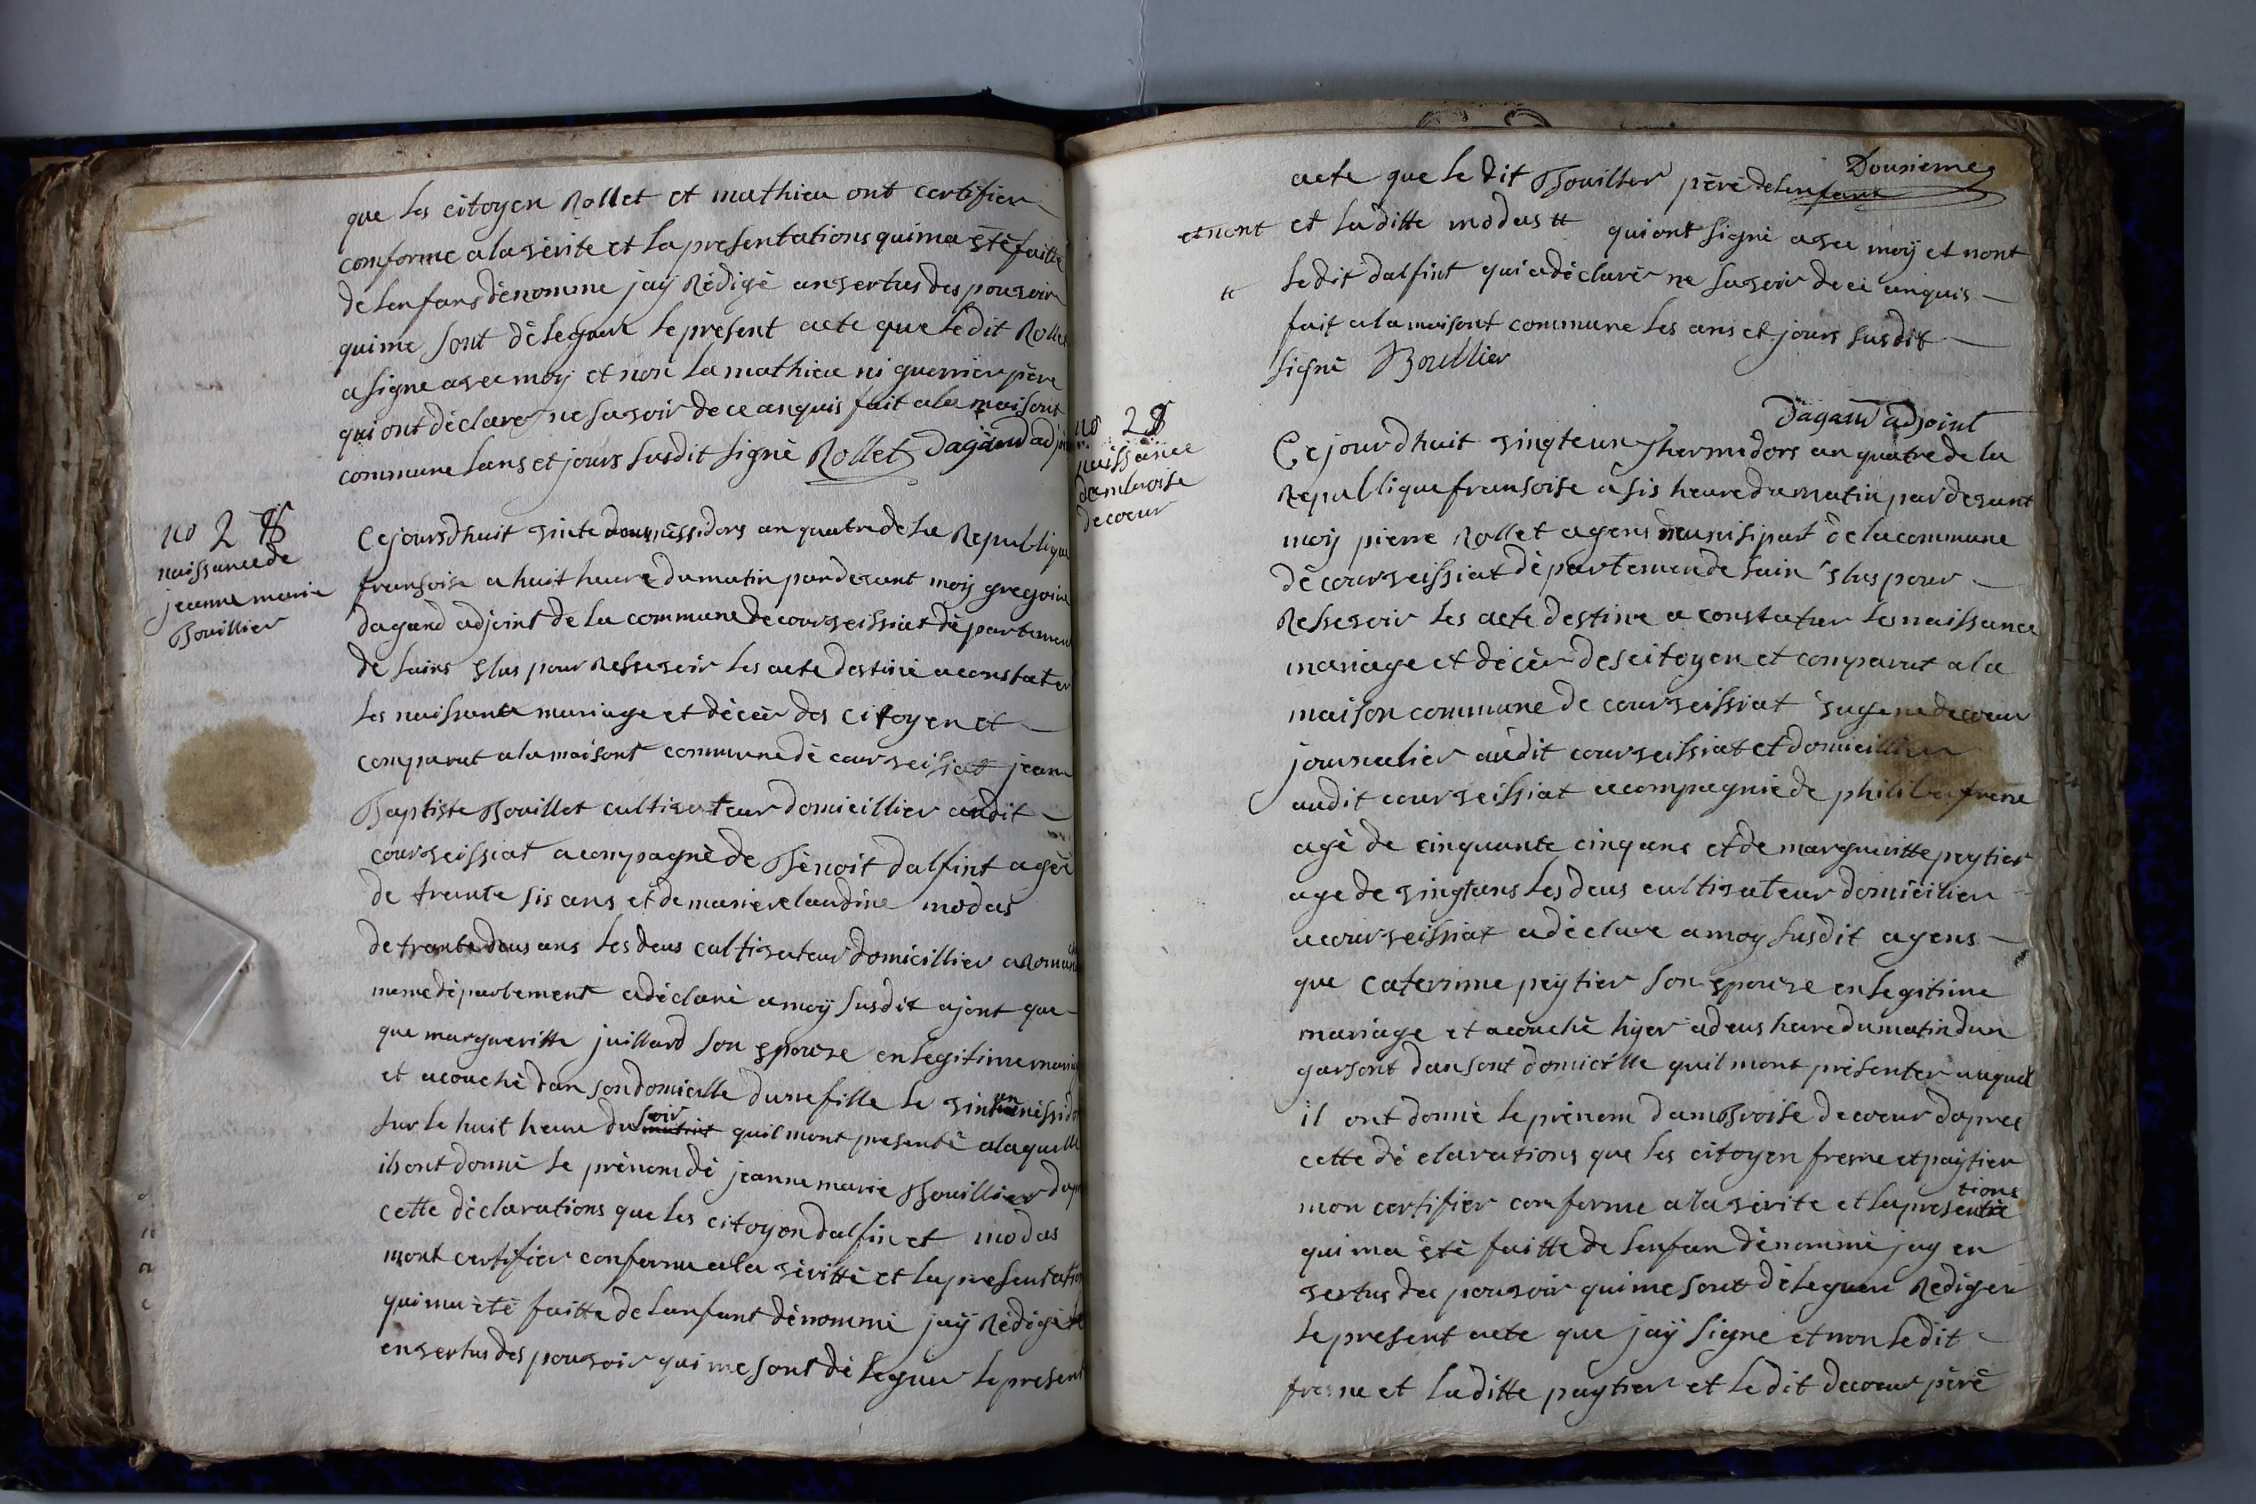 que les citoyen Rollet et mathieu ont certifier
comforme a la vérite et la presentations qui ma été faitte
de lenfans dénomme jaÿ Rédigé an vertus des pouvoir
qui me sont délegure le présent acte que le dit Rollet
a signe avec moy et non la mathieu ni guerrier père
qui ont déclare ne savoir de ce anquis fait a la maisont
commune lans et jours susdit signé Rollet Dagand adjoint
no 2
naissance de
jeanne marie
Bouillier
Ce jourdhuit vinte deus méssidors an quatre de la Republique
fransoise a huit heure du matin par devant moÿ gregoire
dagand adjoint de la commune de courveissiat département
de lains élus pour Ressevoir les acte destiné a constater
les naissance mariage et décèr des citoyen et
comparut a la maisont commune dé courveissiat jean
Baptiste Bouillet cultivateur domicillier audit
courveissiat acompagné de Bénoit dalfint agée
de trante sis ans et de marie claudine modas
de trante deus ans les deus cultivateur domicillier a
meme département a déclaré a moÿ susdit ajont que
que margueritte juillard son épouze en legitime mariage
et acouché dan son domicille dunne fille le vint un méssidor
sur le huit heure du soir matint quil mont presenté a laquelle
ils ont donné le prénom dé jeanne marie Bouillier dapre
cette déclarations que les citoyen dalfin et modas
mont certifier conforme a la véritté et la presentation
qui ma été faitte de lanfant dénommé jaÿ Rédigé
en vertus des pouvoir qui me sont délegure le present
Dousieme
acte que le dit Bouillier père de lenfant
et nont et la ditte modas # qui ont signé avec moÿ et nont
# le dit dalfint qui a déclarér ne savoir de ce anquis
fait a la maisont commune les ans et jours susdit
signé Bouillier
Dagand adjoint
no 2
naissance
dambroise
decoeur
Ce jourdhuit vingt eun thermidors an quatre de la
Republique fransoise a sis heure du matin par devant
moÿ pierre Rollet agens munisipart de la commune
dé courveissiat département de lain élus pour
Ressevoir les acte destine a constatuer les naissance
mariage et décèr des citoyen et comparut a la
maison commune de courveissiat eugene decoeur
journalier audit courveissiat et domicillier
audit courveissiat acompagnié de philiber frene
agé de cinquante cinq ans et de margueritte peytier
age de vingt ans les deus cultivateur domicilier
a courveissiat a déclare a moy susdit agens
que caterinne peytier son épouze en legitime
mariage et acouché hyer a deus heure du matin dun
garsont dan sont domicille quil mont présenter auquel
il ont donné le prénom dambroise decoeur dapres
cette déclarations que les citoyen fresne et paytier
mon certifier conforme a la vérite et la presentations
qui ma été faitte de lenfan dénommé jay en
vertus de pouvoir qui me sont délegure Rediger
le present acte que jaÿ signe et non le dit
fresne et la ditte paytier et le dit decoeur péré